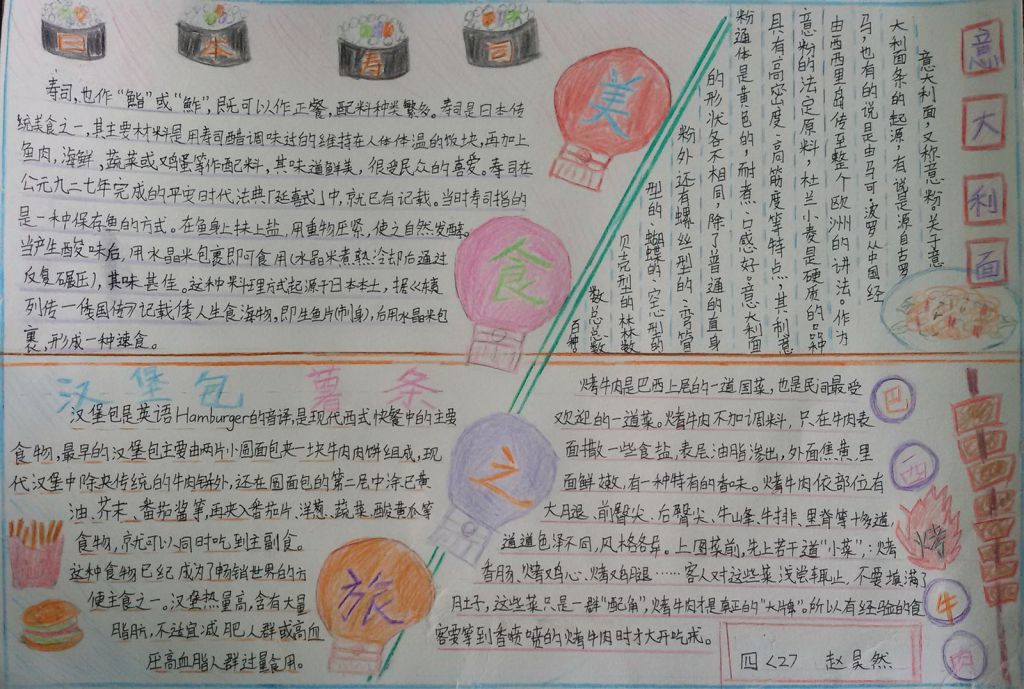 日本寿司
寿司,也作“鮨”或“鮓”,既可以作正餐,配料种类繁多。寿司是日本传
统美食之一,其主要材料是用寿司醋调味过的维持在人体体温的饭块,再加上
鱼肉,海鲜,蔬菜或鸡蛋等作配料,其味道鲜美,很受民众的喜爱。寿司在
公元九二七年完成的平安时代法典「延喜式」中,就已有记载。当时寿司指的
是一种保存鱼的方式。在鱼身上抹上盐,用重物压紧,使之自然发酵。
当产生酸味后,用水晶米包裹即可食用(水晶米煮熟冷却后通过
反复碾压),其味甚佳。这种料理方式起源于日本本土,据《
列传一倭国传》记载倭人生食海物,即生鱼片(刺身),后用水晶米包
裹,形成一种速食。
美食之旅
意大利面
意大利面,又称意粉。关于意
大利面条的起源,有说是源自古罗
马,也有的说是由马可·波罗从中国经
由西西里岛传至整个欧洲的讲法。作为
意粉的法定原料,杜兰小麦是硬质的品种
具有高密度、高筋度等特点,其制意
粉通体是黄色的,耐煮、口感好。意大利面
的形状各不相同,除了普通的直身
粉外还有螺丝型的、弯管
型的、蝴蝶的、空心型的
贝壳型的林林
总总数
百种
汉堡包 薯条
汉堡包是英语Hamburger的音译,是现代西式快餐中的主要
食物,最早的汉堡包主要由两片小圆面包夹一块牛肉肉饼组成,现
代汉堡中除夹传统的牛肉饼外,还在圆面包的第二层中涂以黄
油、芥末、番茄酱等,再夹入番茄片、洋葱、蔬菜、酸黄瓜等
食物,就可以同时吃到主副食。
这种食物已经成为了畅销世界的方
便主食之一。汉堡热量高,含有大量
脂肪,不适宜减肥人群或高血
压高血脂人群过量食用。
巴西烤牛肉
烤牛肉是巴西上层的一道国菜,也是民间最受
欢迎的一道菜。烤牛肉不加调料,只在牛肉表
面撒一些食盐,表层油脂渗出,外面焦黄,里
面鲜嫩,有一种特有的香味。烤牛肉依部位有
大月退、前臀尖、后臀尖、牛峰、牛排、里脊等十多道,
道道色泽不同,风格各异。上图菜前,先上若干道“小菜”,:烤
香肠、烤鸡心、烤鸡腿……客人对这些菜浅尝辄止,不要填满了
肚子,这些菜只是一群“配角”,烤牛肉才是真正的“大牌”。所以有经验的食
客要等到香喷喷的烤牛肉时才大开吃戒。
四<27 赵昊然